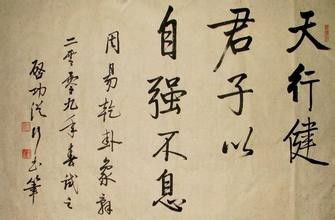 天行健
君子以
自强不息
周易乾卦象辞
二零零九年春试之
启功浣行书笔